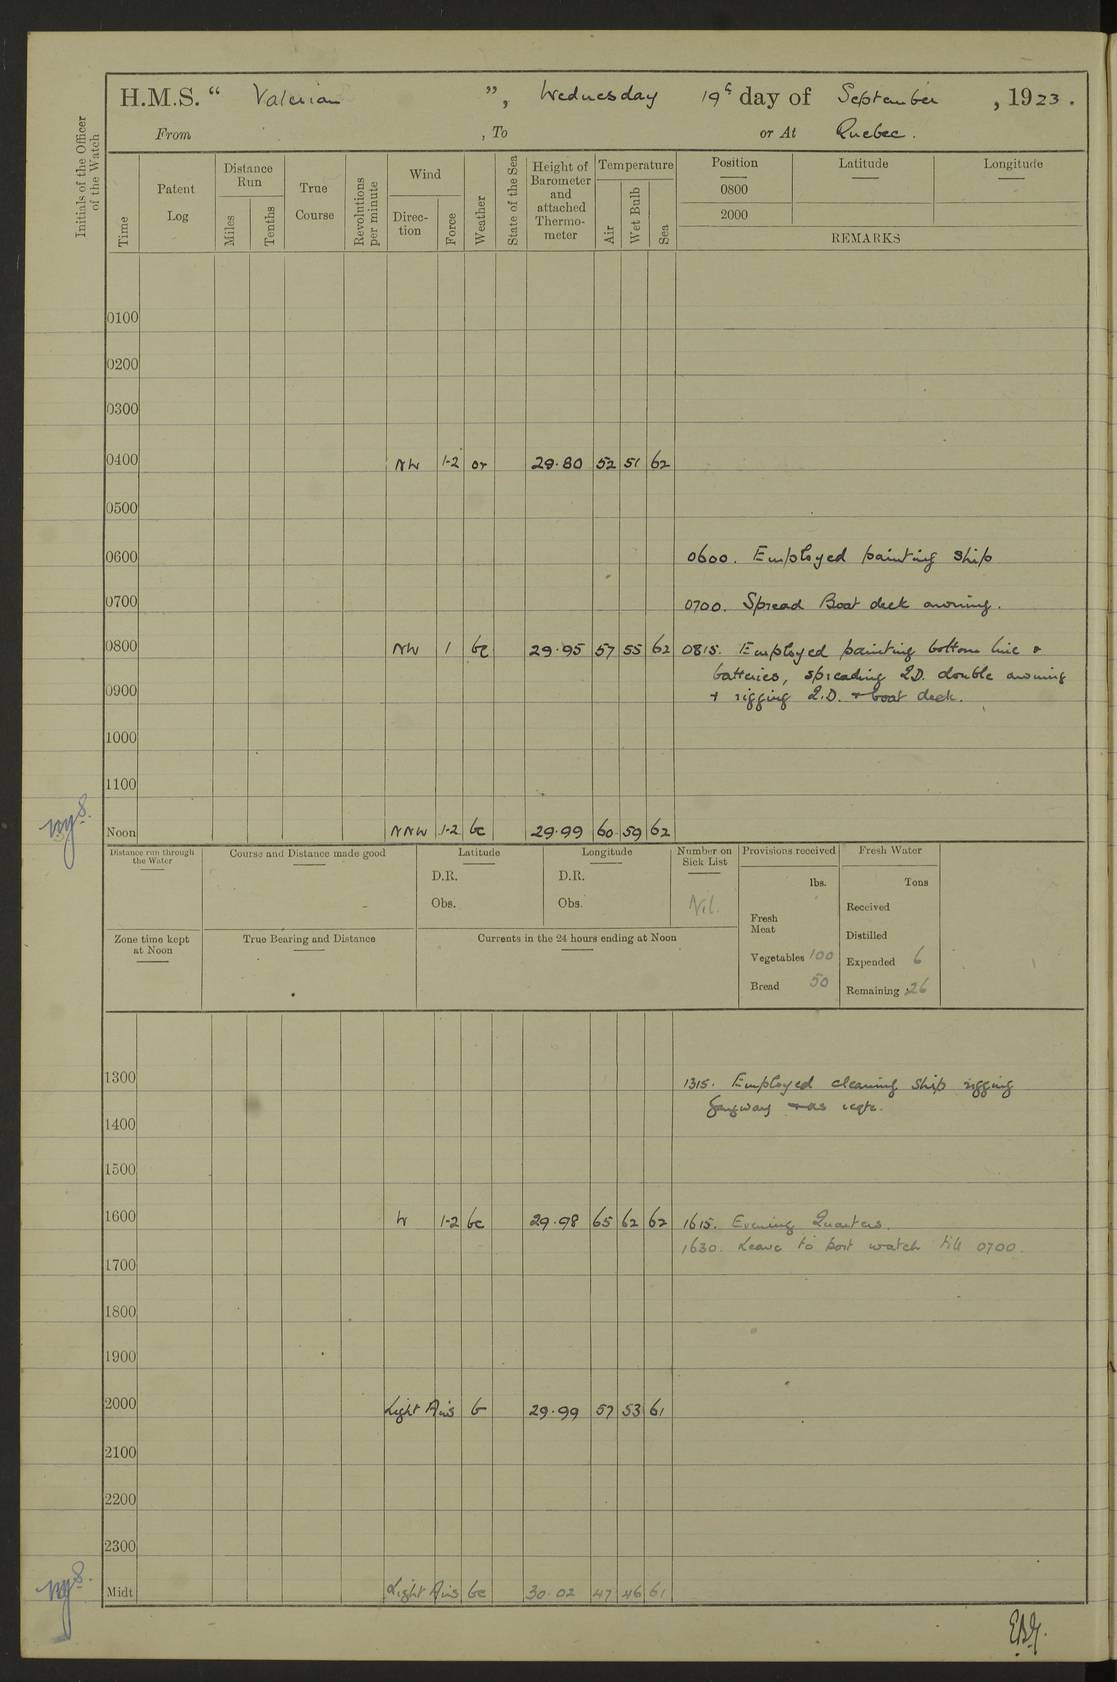 H.M.S. “ Valerian ”, Wednesday 19th day of September, 1923.
From , To or At Quebec.
Initials of the Officer of the Watch
Time
Patent Log
Distance Run
Miles
Tenths
True Course
Revolutions per minute
Wind
Direc-tion
Force
Weather
State of the Sea
Height of Barometer and attached Thermo-meter
Temperature
Air
Wet Bulb
Sea
Position Latitude Longitude
0800
2000
REMARKS
0100
0200
0300
0400 NW 1-2 or 29·80 52 51 62
0500
0600 0600. Employed painting ship
0700 0700. Spread Boat deck awning.
0800 NW 1 bc 29·95 57 55 62 0815. Employed painting bottom line &
batteries, spreading Q.D. double awning
0900 + rigging Q.D. + boat deck.
1000
1100
Noon NNW 1-2 bc 29·99 60 59 62
Distance run through the Water
Course and Distance made good
Latitude
D.R.
Obs.
Longitude
D.R.
Obs.
Number on Sick List
Nil.
Provisions received
lbs.
Fresh Meat
Vegetables 100
Bread 50
Fresh Water
Tons
Received
Distilled
Expended 6
Remaining 26
Zone time kept at Noon
True Bearing and Distance
Currents in the 24 hours ending at Noon
1300 1315. Employed cleaning ship rigging
gangway + as reqte.
1400
1500
1600 W 1-2 bc 29·98 65 62 62 1615. Evening Quarters.
1630. Leave to port watch till 0700.
1700
1800
1900
2000 Light Airs b 29·99 57 53 61
2100
2200
2300
Midt. Light Airs bc 30·02 47 46 61